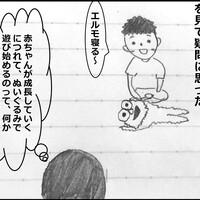 を見て疑問に思った
エルモ寝る〜
赤ちゃんが成長していく
につれて、ぬいぐるみで
遊び始めるのって、何か